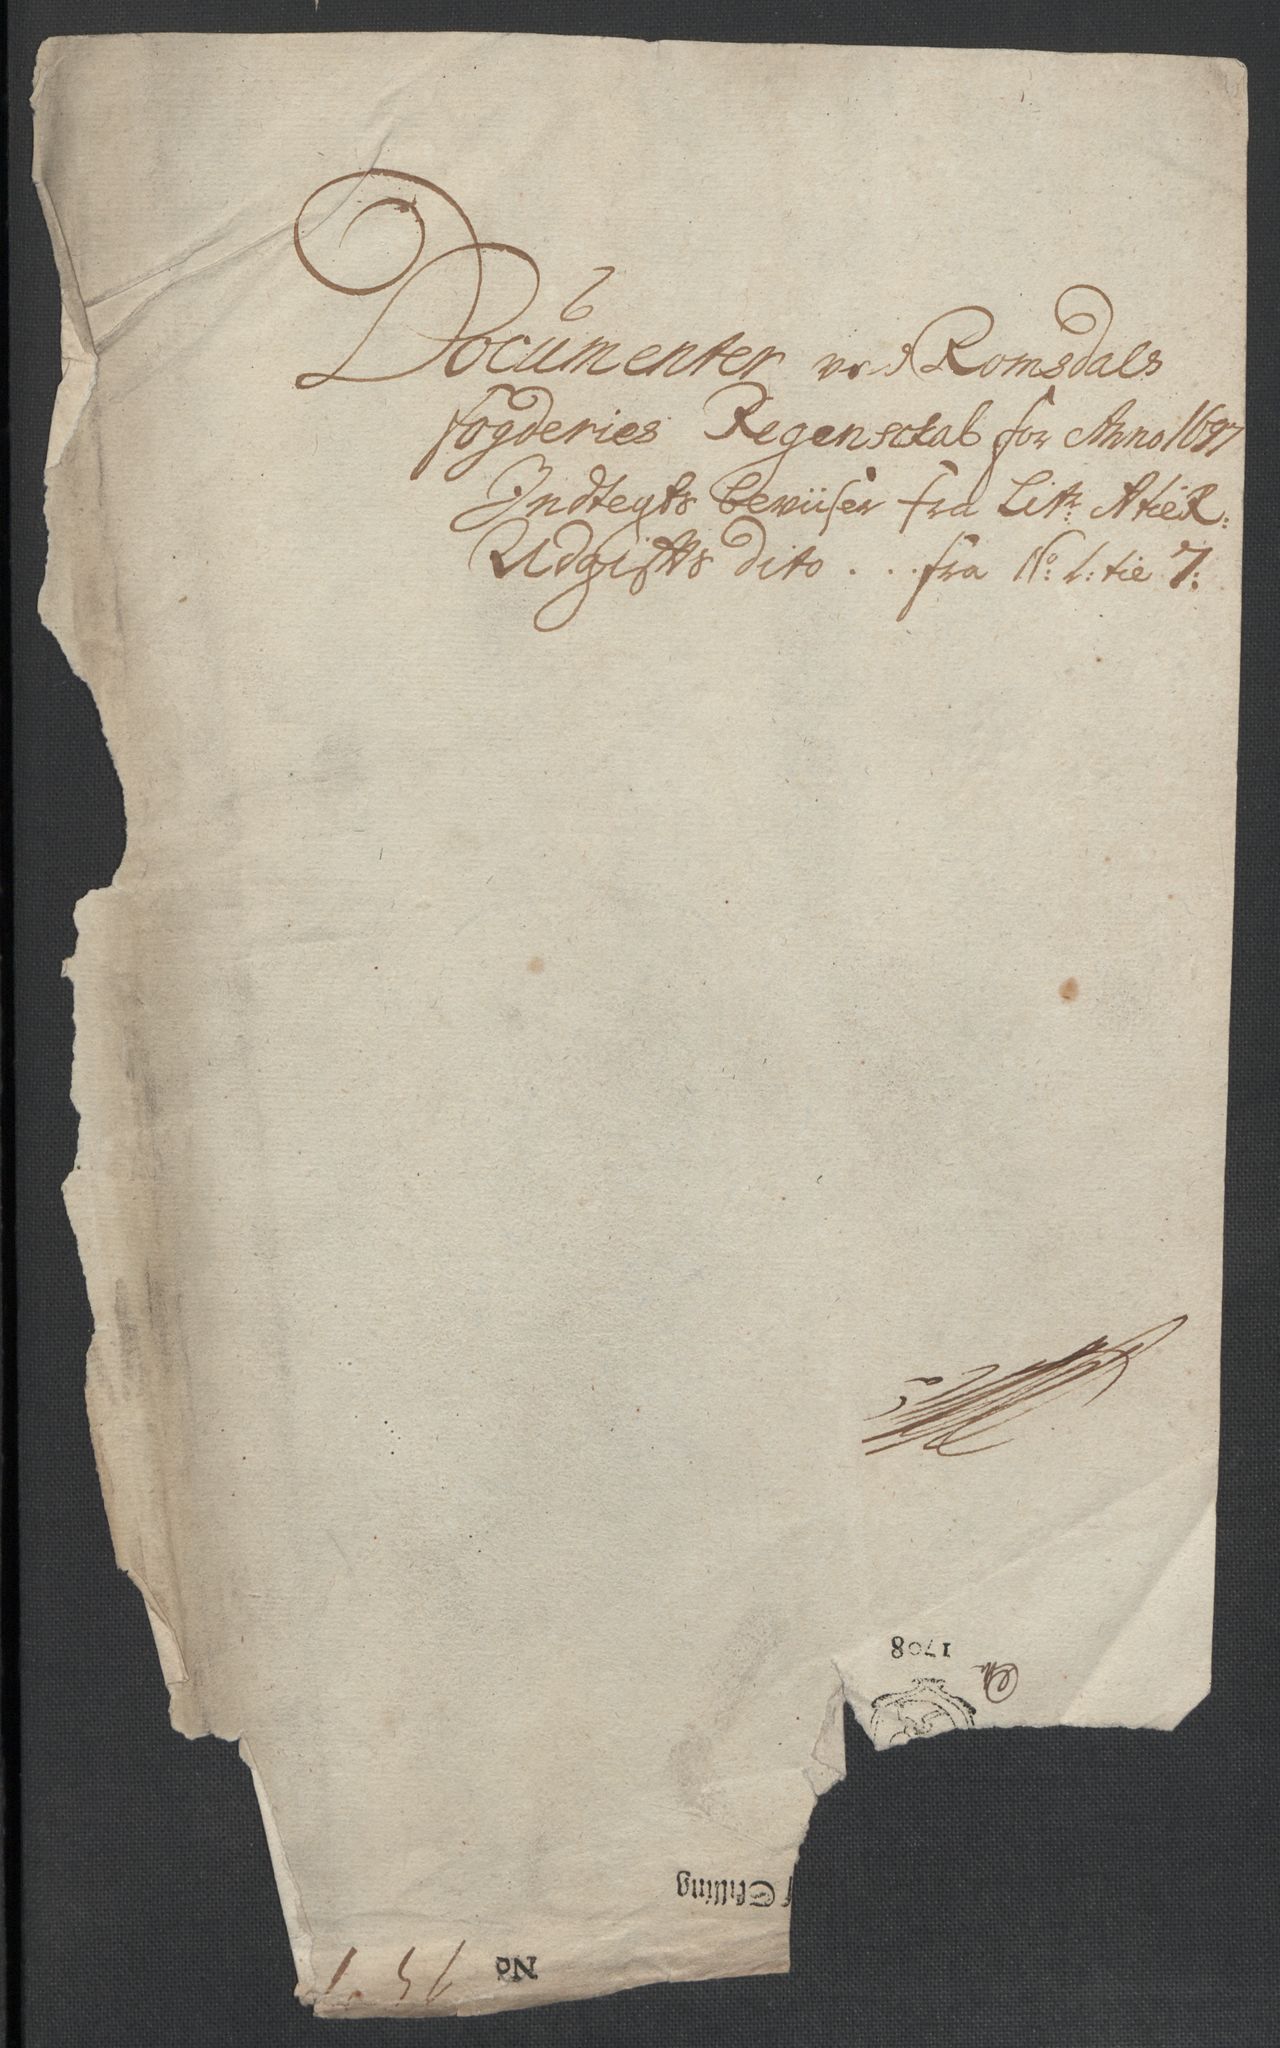 Documenter ved Romsdals
fogderies Regenschab for Anno 1697
Indtegts beviiser fra Litr: A tie R:
Udgiffts dito . . . fra No: 1: tie 7:
1708
Skilling
No